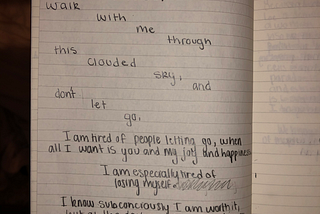 walk
with
me
through
this
clouded
sky,
and
dont
let
go.
I am tired of people letting go, when
all I want is you and my joy and happiness.
I am especially tired of
losing myself
I know subconciously I am worth it,